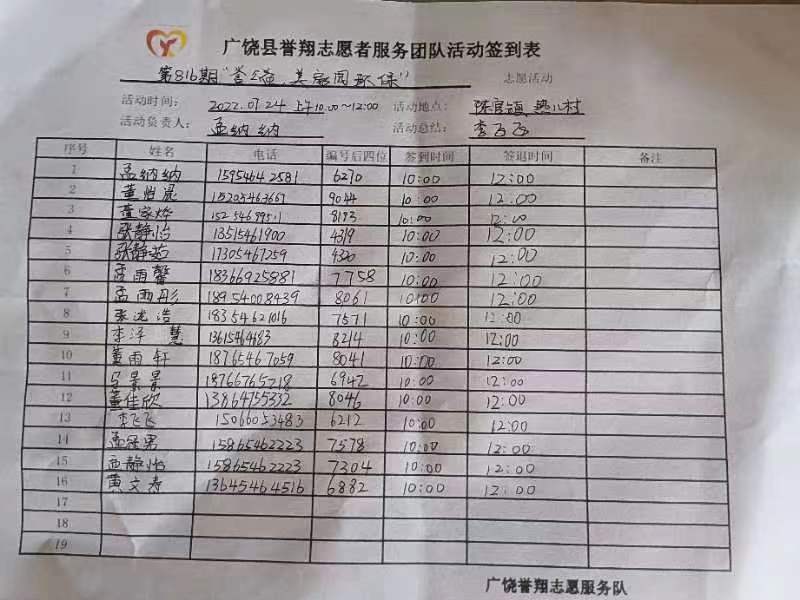 广饶县誉翔志愿者服务团队活动签到表
第816期"誉公益 美家园环保" 志愿活动
活动时间: 2022.07.24 上午10:00~12:00 活动地点: 陈官镇 村
活动负责人: 孟纳纳 活动总结: 李
序号 姓名 电话 编号后四位 签到时间 签退时间 备注
1 孟纳纳 15954642581 6270 10:00 12:00
2 董怡晨 15205463667 9044 10:00 12:00
3 董家烨 8193 10:00 12:00
4 张静怡 13515461900 4319 10:00 12:00
5 张静茹 17305467259 4320 10:00 12:00
6 孟雨馨 18366925881 7758 10:00 12:00
7 孟雨彤 18954008439 8061 10:00 12:00
8 张 浩 18354621016 7571 10:00 12:00
9 李泽慧 13615464683 8214 10:00 12:00
10 董雨轩 18765467059 8041 10:00 12:00
11 景景 18766765218 6942 10:00 12:00
12 董佳欣 13864755332 8046 10:00 12:00
13 李飞飞 15066053483 6212 10:00 12:00
14 孟 男 15865462223 7578 10:00 12:00
15 静怡 15865462223 7304 10:00 12:00
16 黄文寿 13645464516 6882 10:00 12:00
17
18
19
广饶誉翔志愿服务队